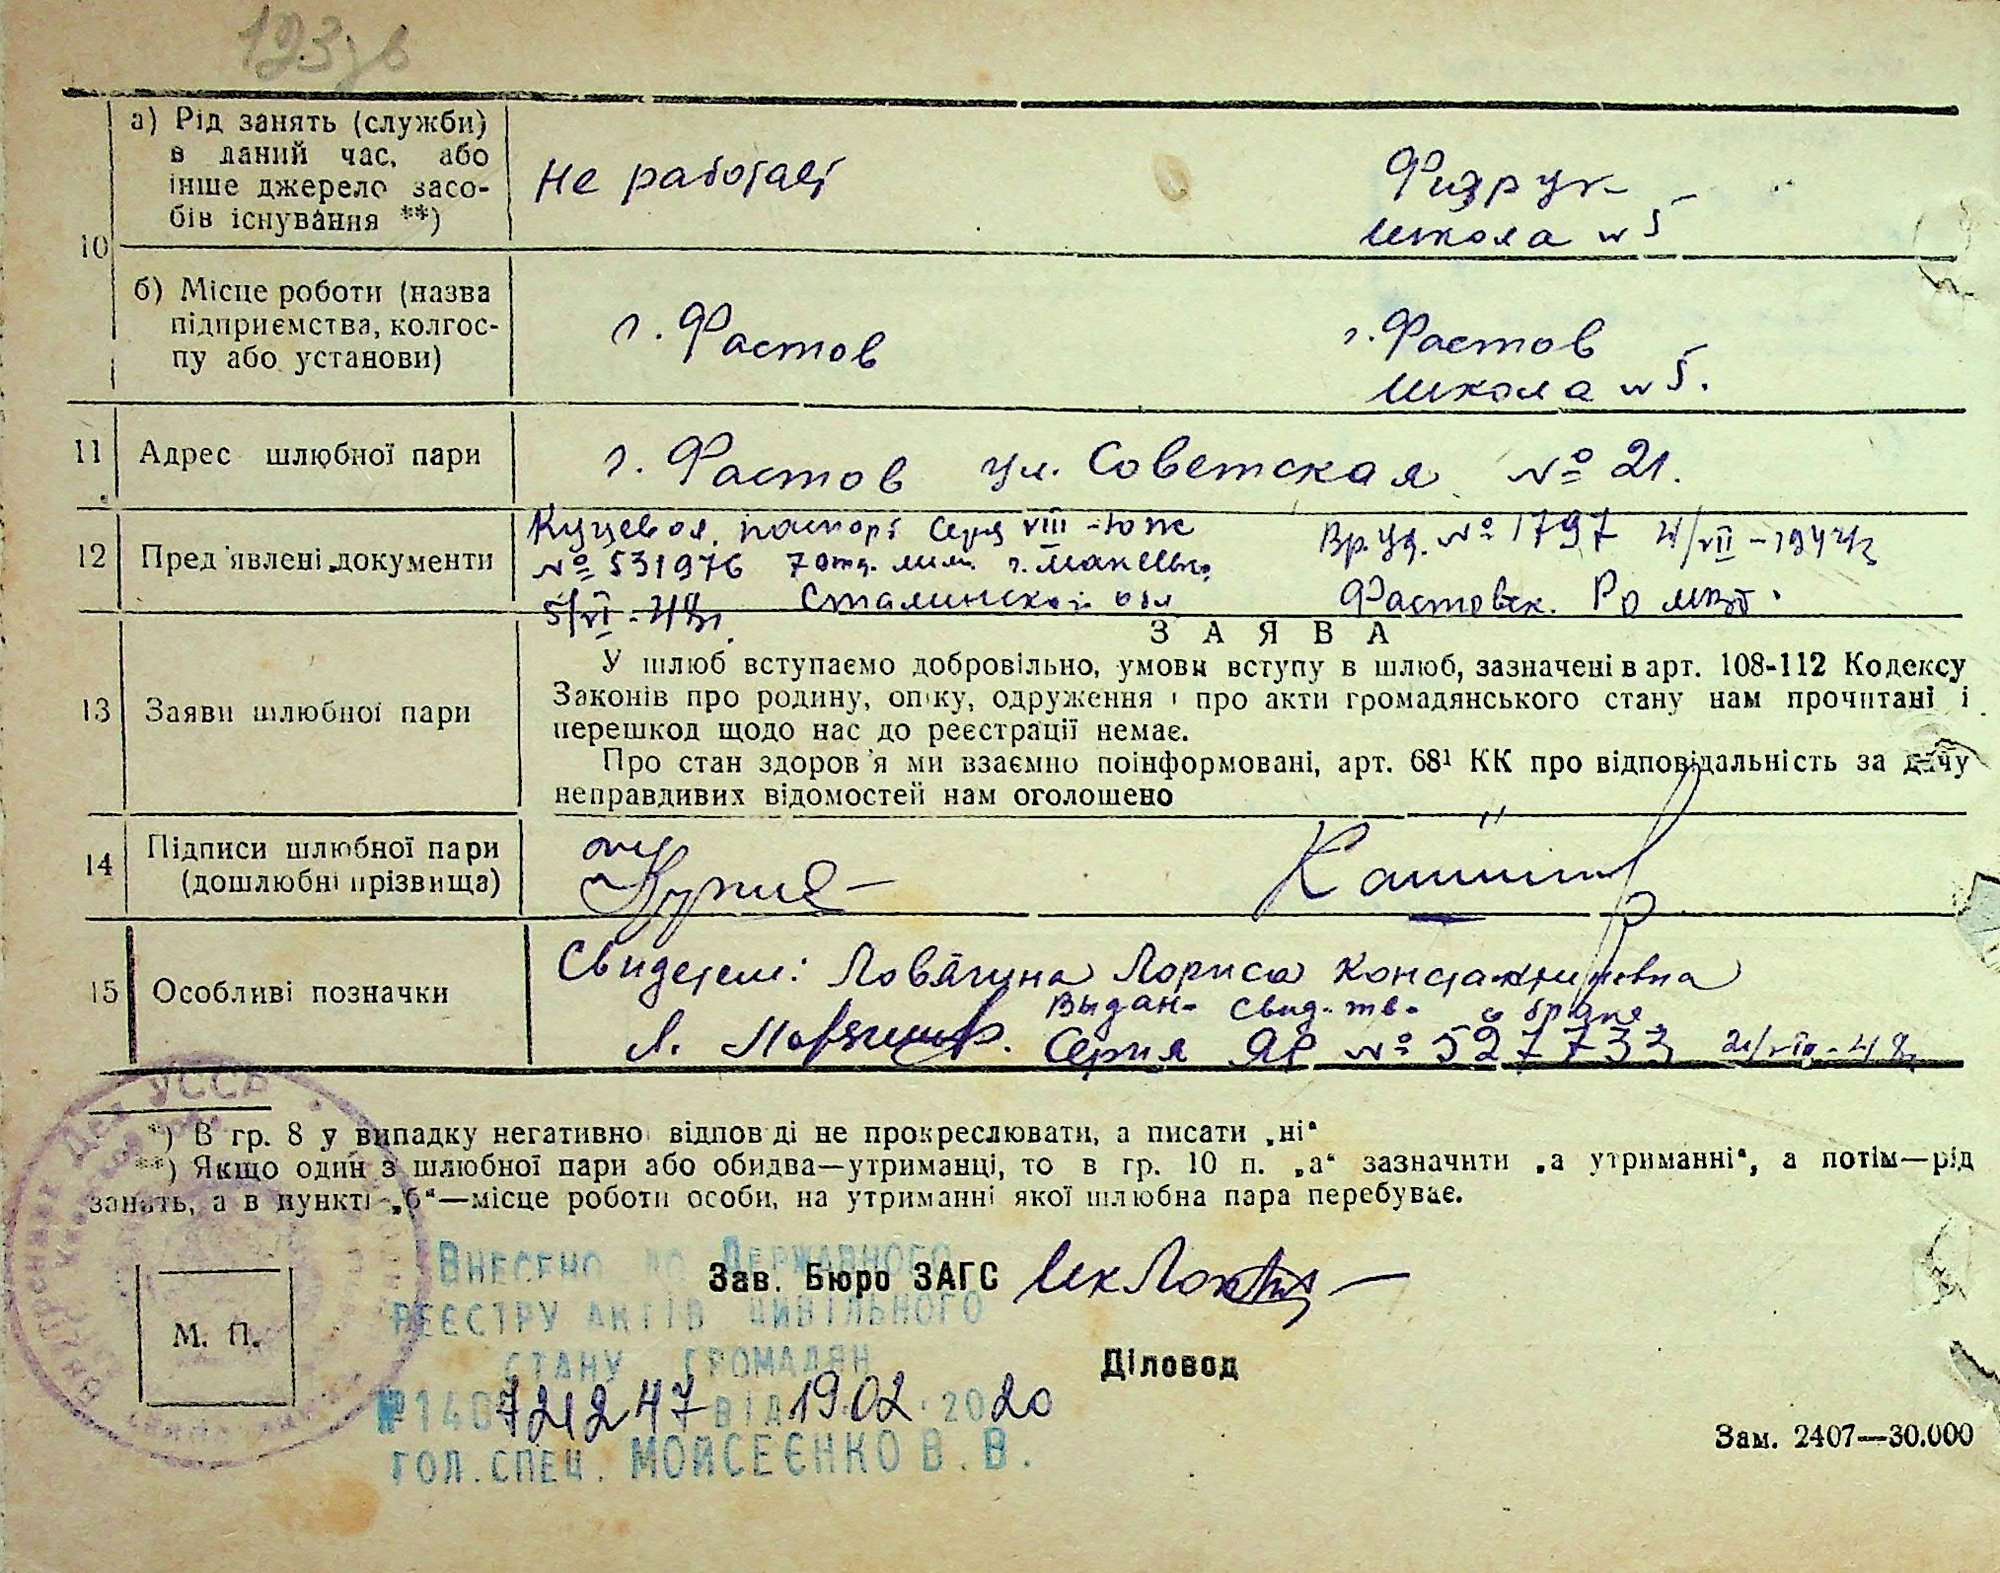 123 зв
10
а) Рід занять (служби) в даний час, або інше джерело засобів існування **)
Не работает
Физрук
школа № 5
б) Місце роботи (назва підприємства, колгоспу або установи)
г. Фастов
г. Фастов
школа № 5.
11 Адрес шлюбної пари
г. Фастов ул. Советская № 21.
12 Пред'явлені документи
паспорт серия VIII-Юж
№ 531976 7 отд. мил. г.
5/VI-48г. Сталинской обл
Вр. уд. № 1797
Фастовск. РО МВД.
13 Заяви шлюбної пари
ЗАЯВА
У шлюб вступаємо добровільно, умови вступу в шлюб, зазначені в арт. 108-112 Кодексу
Законів про родину, опіку, одруження і про акти громадянського стану нам прочитані і
перешкод щодо нас до реєстрації немає.
Про стан здоров'я ми взаємно поінформовані, арт. 68¹ КК про відповідальність за дачу
неправдивих відомостей нам оголошено
14 Підписи шлюбної пари
(дошлюбні прізвища)
15 Особливі позначки
Свидетели: Ловягина Лариса Константиновна
Выдан. свид-тв. о браке
Серия ЯР № 527733
*) В гр. 8 у випадку негативної відповіді не прокреслювати, а писати „ні“
**) Якщо один з шлюбної пари або обидва—утриманці, то в гр. 10 п. „а“ зазначити „а утриманні“, а потім—рід
занять, а в пункті „б“—місце роботи особи, на утриманні якої шлюбна пара перебуває.
УССР
М. П.
Зав. Бюро ЗАГС
Діловод
ВНЕСЕНО ДО ДЕРЖАВНОГО
РЕЄСТРУ АКТІВ ЦИВІЛЬНОГО
СТАНУ ГРОМАДЯН
від 19.02.2020
ГОЛ. СПЕЦ. МОЙСЕЄНКО В. В.
Зам. 2407—30.000